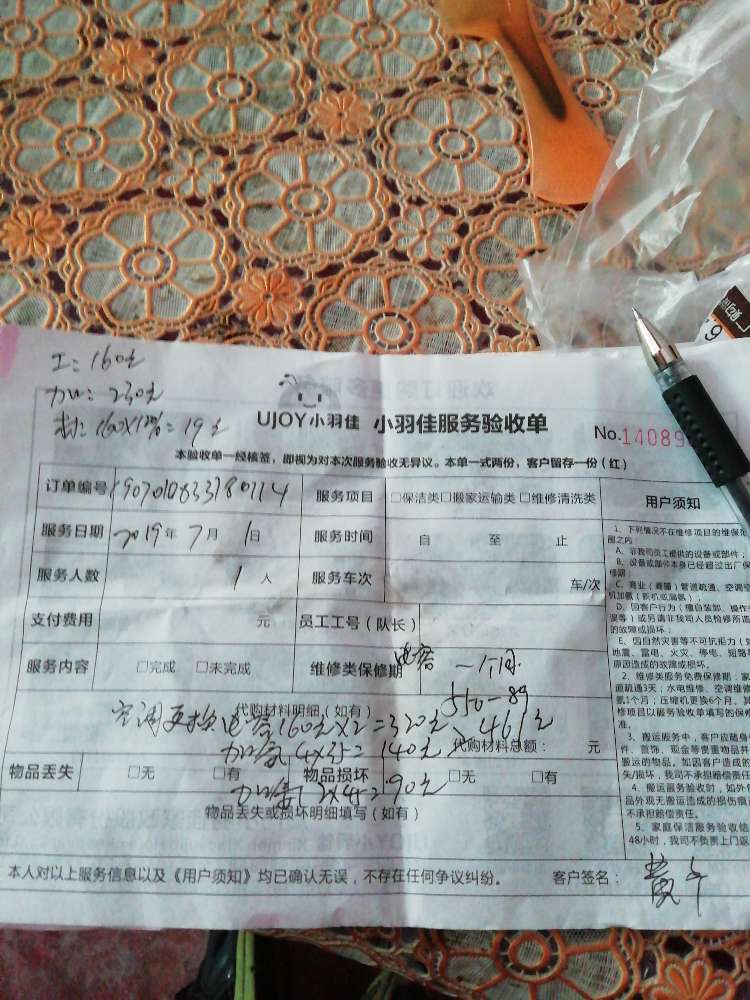 工：160元
加：230元
材：160X12%=19元
UJOY小羽佳 小羽佳服务验收单
No.14089
本验收单一经核签，即视为对本次服务验收无异议。本单一式两份，客户留存一份（红）
订单编号 1907010833180114 服务项目 □保洁类□搬家运输类□维修清洗类
服务日期 2019年7月1日 服务时间 自 至 止
服务人数 1人 服务车次 车/次
支付费用 元 员工工号（队长）
服务内容 □完成 □未完成 维修类保修期 电容 一个月
代购材料明细（如有） 550-89
空调更换电容160元X2=320元 461元
加氟4X35=140元 代购材料总额： 元
物品丢失 □无 □有 物品损坏 □无 □有
加氟2X45=90元
物品丢失或损坏明细填写（如有）
本人对以上服务信息以及《用户须知》均已确认无误，不存在任何争议纠纷。 客户签名：
用户须知
1、下列情况不在维修项目的维保范
围之内
A、非我司员工提供的设备或部件；
B、设备或部件本身已经超过出厂保
修期；
C、商业（商铺）管道疏通、空调空
机加氟（新机或漏氟）；
D、因客户行为（擅自装卸、操作
误等）或另请非我司人员检修所造
的故障或损坏；
E、因自然灾害等不可抗拒力（如
地震、雷电、火灾、停电、短路
原因造成的故障或损坏。
2、维修类服务免费保修期：家
直疏通3天；水电维修、空调维修
氟1个月；压缩机更换6个月。其
修项目以服务验收单填写的保修
准。
3、搬运服务中，客户应随身
件、首饰、现金等贵重物品并
搬运的物品。如因客户造成的
失/损坏，我司不承担赔偿责任
4、搬运服务验收时，如外包
品外观无搬运造成的损伤痕
不承担赔偿责任。
5、家庭保洁服务验收结
48小时，我司不负责上门返